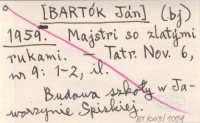 [BARTÓK Ján] (bj)
1959. Majstri so zlatými
rukami. — Tatr. Nov. 6,
nr 9: 1-2, il.
Budowa szkoły w Ja-
worzynie Spiskiej.